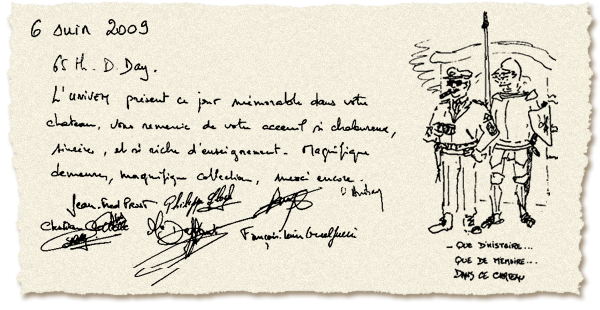 6 Juin 2009
65 th. D. Day.
L'UNIVEM présent ce jour mémorable dans votre
chateau, vous remercie de votre acceuil si chaleureux,
sincère, et si riche d'enseignement. Magnifique
demeure, magnifique collection, merci encore.
Jean-Fred Prost Philippe
Christian
François-Louis
... QUE D'HISTOIRE...
QUE DE MEMOIRE...
DANS CE CHATEAU